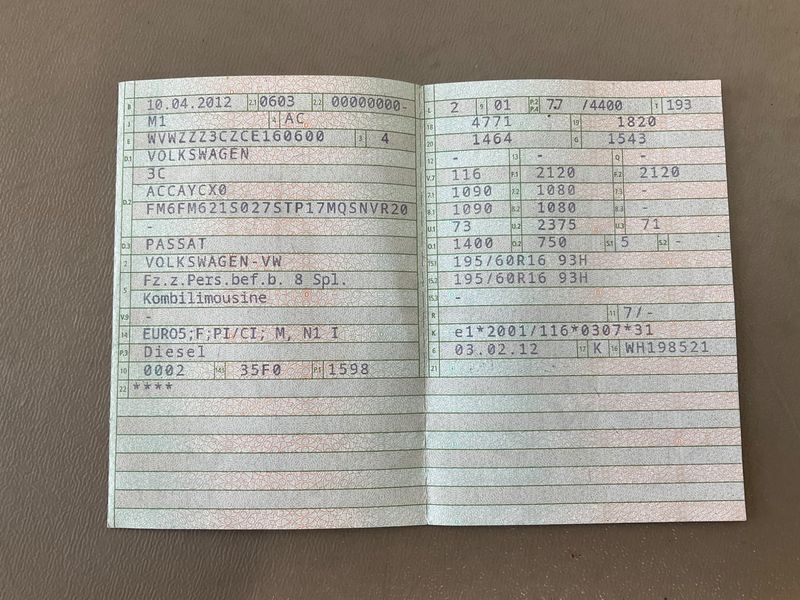 B 10.04.2012 2.1 0603 2.2 00000000-
J M1 4 AC
E WVWZZZ3CZCE160600 3 4
D.1 VOLKSWAGEN
3C
D.2 ACCAYCX0
FM6FM621S027STP17MQSNVR20
-
D.3 PASSAT
2 VOLKSWAGEN-VW
5 Fz.z.Pers.bef.b. 8 Spl.
Kombilimousine
V.9 -
14 EURO5;F;PI/CI; M, N1 I
P.3 Diesel
10 0002 14.1 35F0 P.1 1598
22 ****
L 2 9 01 P.2 P.4 77 /4400 T 193
18 4771 19 1820
20 1464 G 1543
12 - 13 - Q -
V.7 116 F.1 2120 F.2 2120
7.1 1090 7.2 1080 7.3 -
8.1 1090 8.2 1080 8.3 -
U.1 73 U.2 2375 U.3 71
O.1 1400 O.2 750 S.1 5 S.2 -
15.1 195/60R16 93H
15.2 195/60R16 93H
15.3 -
R 11 7/-
K e1*2001/116*0307*31
6 03.02.12 17 K 16 WH198521
21